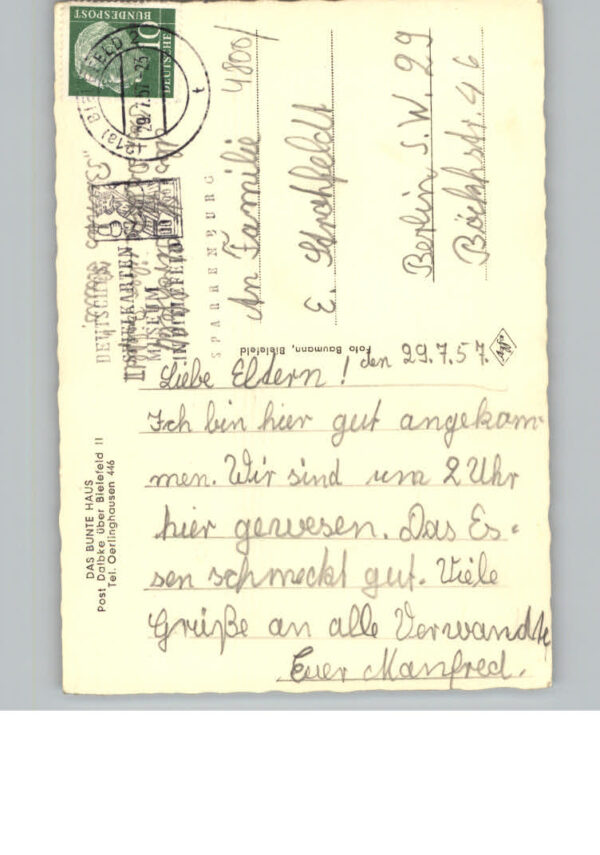 den 29.7.57.
Liebe Eltern!
Ich bin hier gut angekom-
men. Wir sind um 2 Uhr
hier gewesen. Das Es-
sen schmeckt gut. Viele
Grüße an alle Verwandte
Euer Manfred.
An Familie 4800/
E. Strohfeldt
Berlin S.W. 29
Böckhstr. 46
DAS BUNTE HAUS
Post Dalbke über Bielefeld II
Tel. Oerlinghausen 446
Foto Baumann, Bielefeld
SPARRENBURG
DEUTSCHES
SPIELKARTEN
MUSEUM
IN BIELEFELD
DEUTSCHE
BUNDESPOST
10
(21a) BIELEFELD 2
29.7.57
t